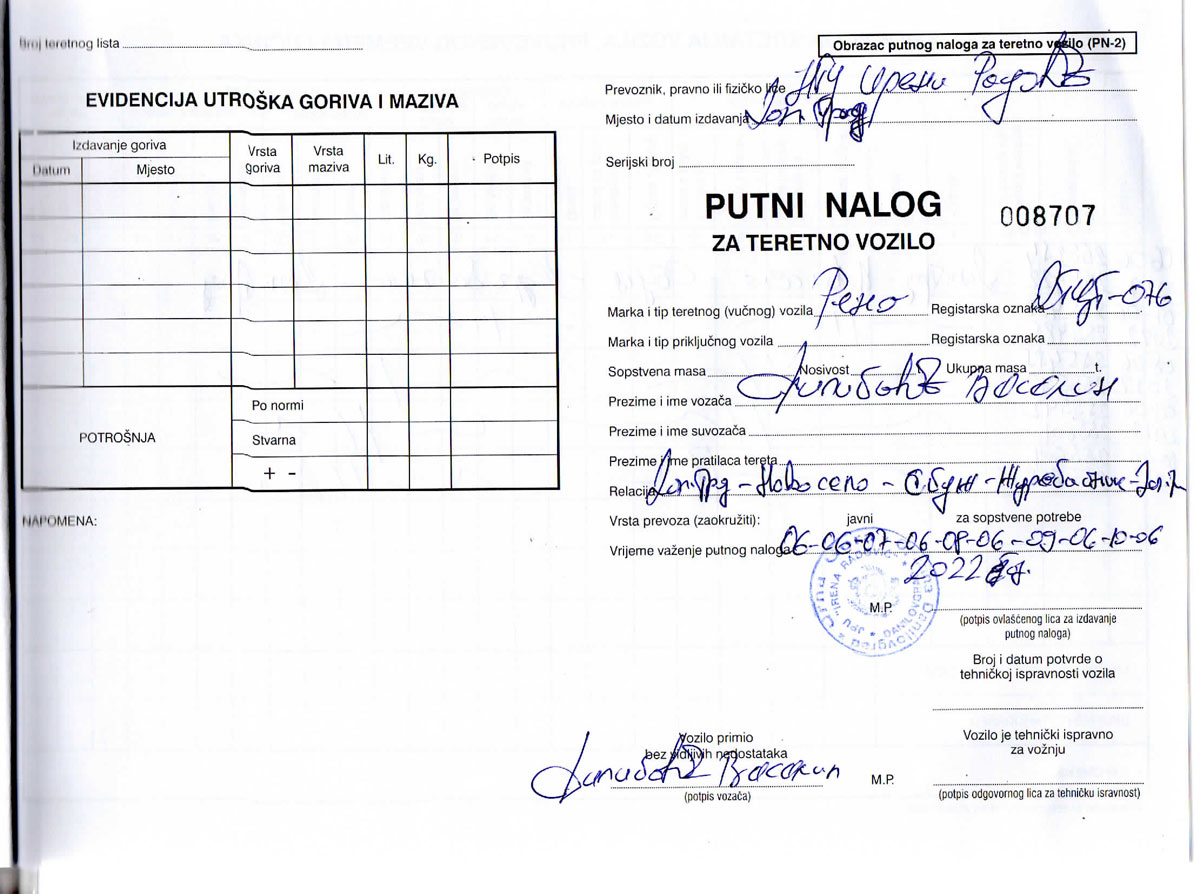 Broj teretnog lista
EVIDENCIJA UTROŠKA GORIVA I MAZIVA
Izdavanje goriva
Datum
Mjesto
Vrsta goriva
Vrsta maziva
Lit.
Kg.
Potpis
POTROŠNJA
Po normi
Stvarna
+ -
NAPOMENA:
Obrazac putnog naloga za teretno vozilo (PN-2)
Prevoznik, pravno ili fizičko lice ЈПУ Ирена Радовић
Mjesto i datum izdavanja
Serijski broj
PUTNI NALOG 008707
ZA TERETNO VOZILO
Marka i tip teretnog (vučnog) vozila Рено Registarska oznaka -076
Marka i tip priključnog vozila Registarska oznaka
Sopstvena masa Nosivost Ukupna masa t.
Prezime i ime vozača
Prezime i ime suvozača
Prezime i ime pratilaca tereta
Relacija - Ново село -
Vrsta prevoza (zaokružiti): javni za sopstvene potrebe
Vrijeme važenje putnog naloga 06-06-07-06-08-06-09-06-10-06
2022
M.P.
(potpis ovlašćenog lica za izdavanje
putnog naloga)
Crna Gora
JPU "IRENA RADOVIĆ"
DANILOVGRAD
Broj i datum potvrde o
tehničkoj ispravnosti vozila
Vozilo primio
bez vidljivih nedostataka
(potpis vozača)
M.P.
Vozilo je tehnički ispravno
za vožnju
(potpis odgovornog lica za tehničku isravnost)